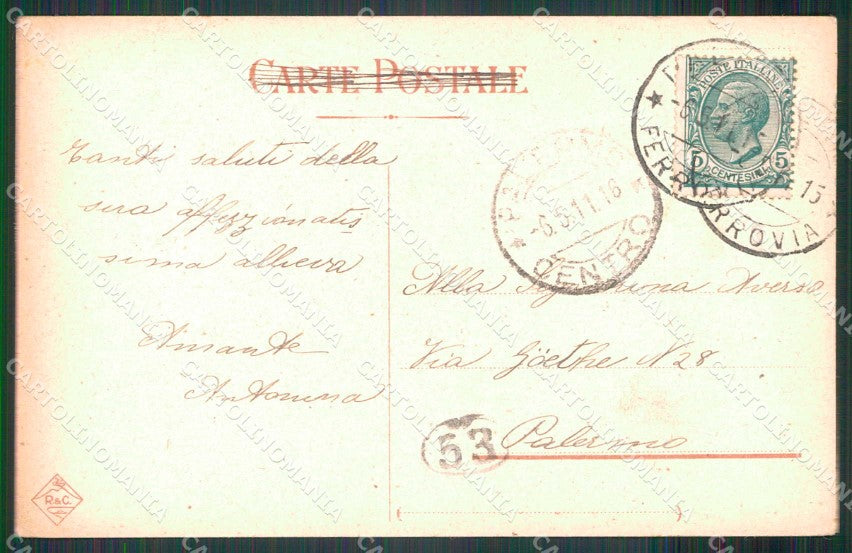 CARTE POSTALE
POSTE ITALIANE
5 CENTESIMI 5
FERROVIA
FERROVIA
15
-6.5.11.16
CENTRO
Tanti saluti della
sua affezzionatis
sima allieva
Amante
Antonina
Alla Signorina Aversa
Via Göethe N 28
Palermo
53
R&C.
CARTOLINOMANIA